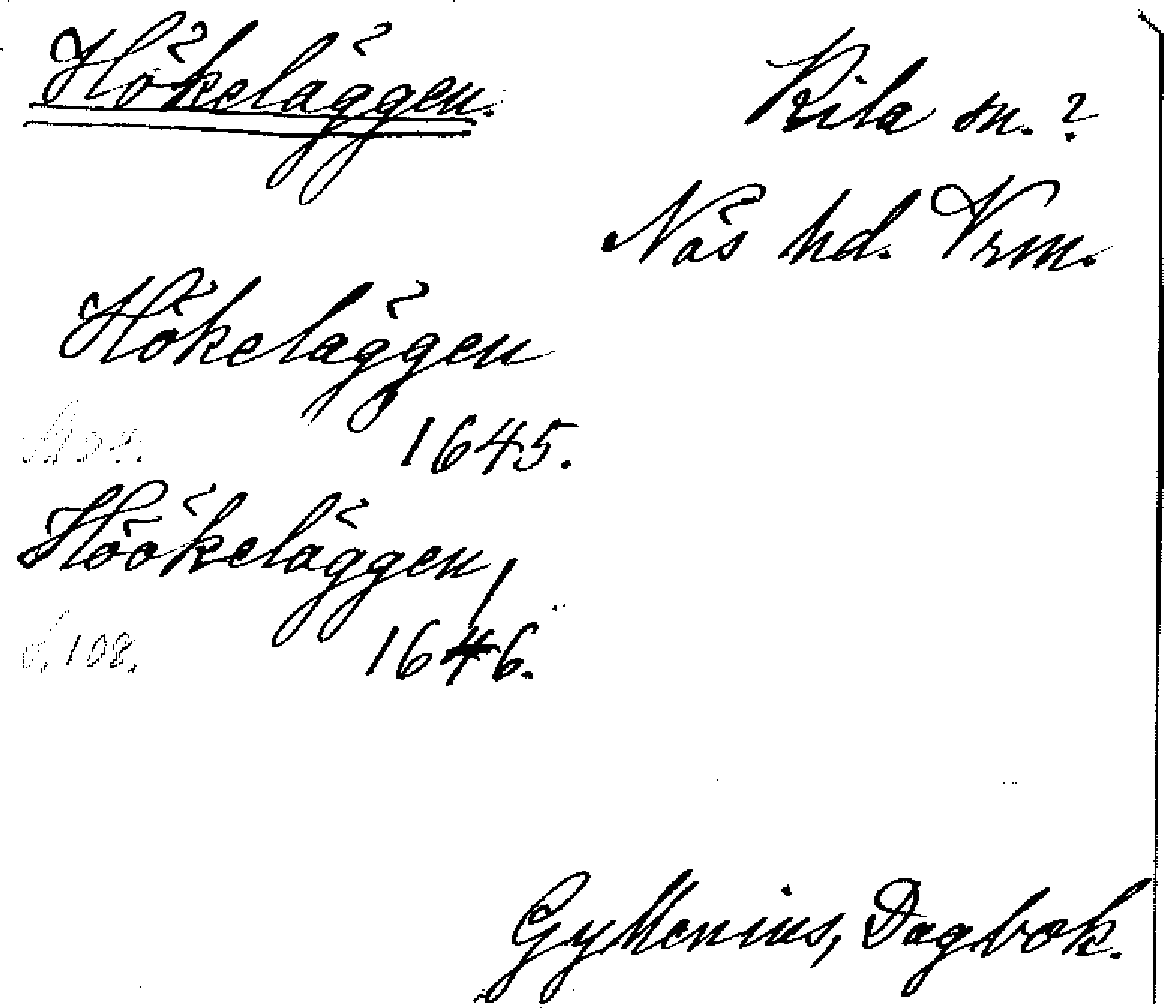 Hökeläggen.
Kila sn.?
Näs hd. Vrm.
Hökeläggen
1645.
Höökeläggen,
s. 108. 1646.
Gyllenius, Dagbok.